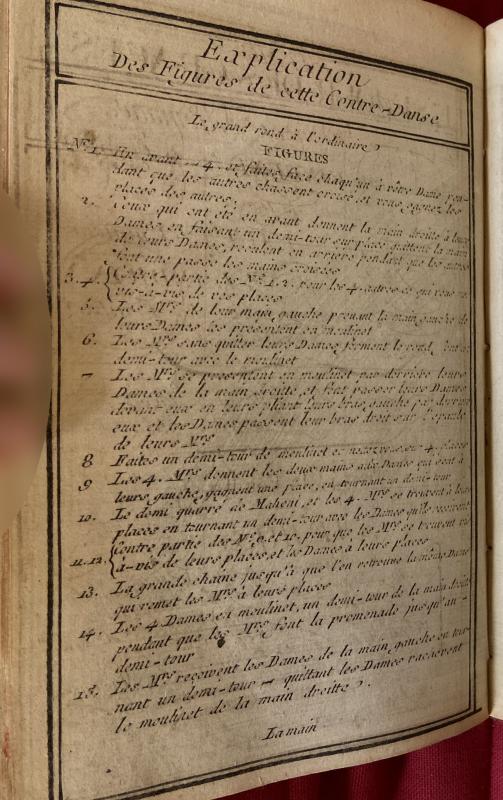 Explication
Des Figures de cette Contre-Danse
Le grand rond à l'ordinaire
FIGURES
No. 1. En avant 4. et faites face chaqu'un à vôtre Dame pen-
dant que les autres chassent croisé, et vous gagnez les
places des autres.
2. Ceux qui ont été en avant donnent la main droite à leurs
Dames en faisant un demi-tour sur place quittent la main
de leurs Dames, reculent en arriere pendant que les autres
font une passe les mains croisées
3.4. Contre-partie des Nos. 1. 2. pour les 4. autres ce qui vous
vis-à-vis de vos places
5. Les Mrs. de leur main gauche prenant la main gauche de
leurs Dames les presentent en moulinet
6. Les Mrs. sans quitter leurs Dames forment le rond,
demi-tour avec le moulinet
7 Les Mrs. se presentent en moulinet par derriere leurs
Dames de la main droite, et font passer leurs Dames
devant eux en leurs pliant leurs bras gauche par derriere
eux et les Dames passent leur bras droit sur l'epaule
de leurs Mrs
8 Faites un demi-tour de moulinet 4. places
9 Les 4. Mrs. donnent les deux mains aux Dames qui sont à
leurs gauche, gagnent une place, en tournant un demi-tour
10. Le demi quarré de Mahoni, et les 4. Mrs. se trouvent à leurs
places en tournant un demi-tour avec les Dames qu'ils reçoivent
11.12. Contre partie des Nos. 9 et 10. pour que les Mrs. se trouvent vis
à-vis de leurs places, et les Dames à leurs places
13. La grande chaine jusqu'à que l'on retrouve la même Dame
qui remet les Mrs à leurs places
14. Les 4 Dames en moulinet, un demi-tour de la main droite
pendant que les Mrs. font la promenade jusqu'au
demi-tour
15. Les Mrs reçoivent les Dames de la main gauche en tour-
nant un demi-tour quittant les Dames
le moulinet de la main droitte.
La main